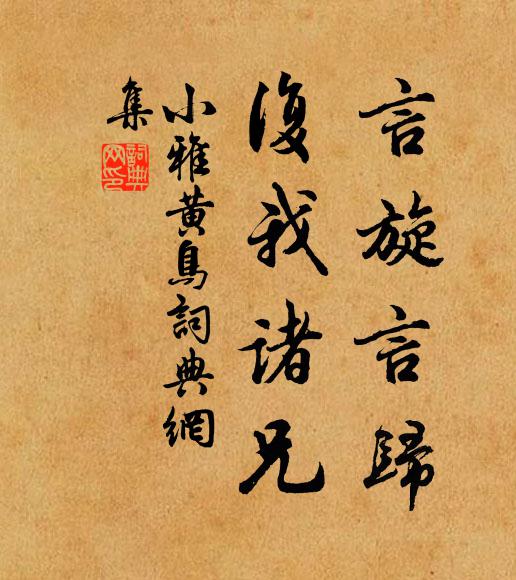 言旋言歸
復我諸兄
小雅黃鳥詞典網
集
詞典網印